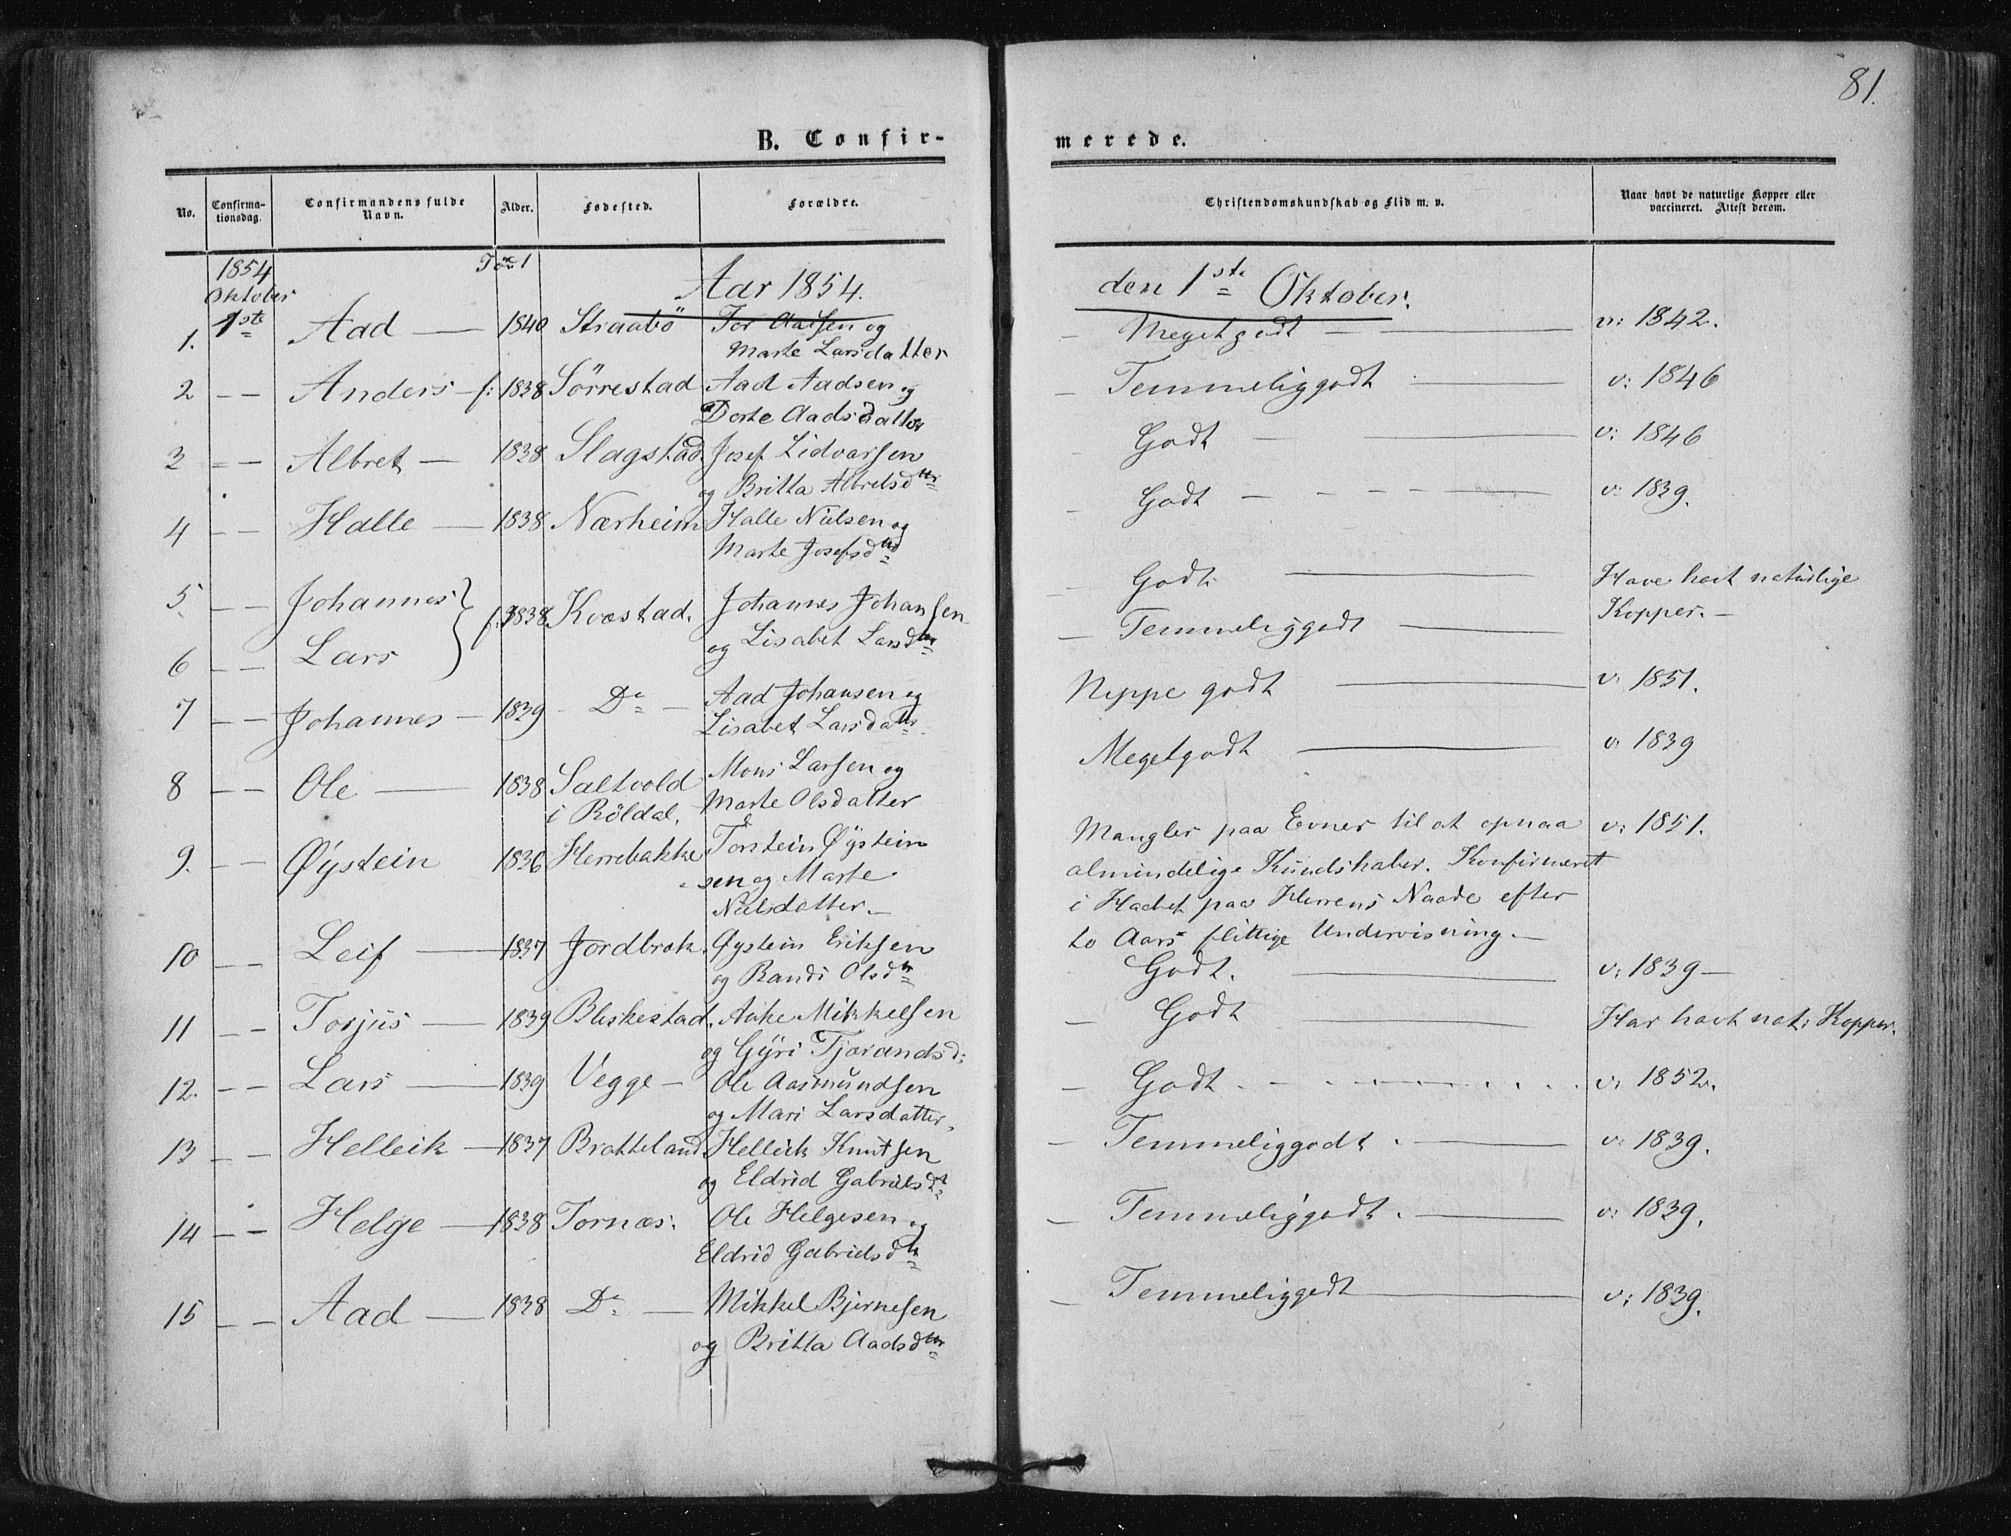 81.
B. Confirmerede.
No. Confirmationsdag. Confirmandens fulde Navn. Alder. Fødested. Forældre. Christendomskundskab og Flid m. v. Naar havt de naturlige Kopper eller vaccineret. Attest derom.
1854 Oktober 1ste Aar 1854. den 1ste Oktober.
1. Aad — 1840 Straabö Tor Aadsen og Marte Larsdatter — Megetgodt — v: 1842.
2 — — Anders — f: 1838 Sörrestad Aad Aadsen og Dorte Aadsdatter — Temmeliggodt — v: 1846
3 — — Albret — 1838 Slagstad. Josef Lidvarsen og Britta Albretsdtr Godt — v: 1846
4 — — Halle — 1838 Nærheim Halle Nielsen og Marte Josefsdtr — Godt — v: 1839.
5. — — Johannes } f: 1838. Kvæstad. Johannes Johansen og Lisabet Larsdtr — Godt — Have havt naturlige Kopper. —
6 — — Lars — Temmeliggodt —
7 — — Johannes — 1839 — Do — Aad Johansen og Lisabet Larsdatr. Neppe godt — v. 1851.
8 — — Ole — 1838 Saltvold i Röldal. Mons Larsen og Marte Olsdatter Megetgodt — v. 1839
9. — — Øystein 1836 Herrebakke Torstein Øysteinsen og Marte Nielsdatter. — Mangler paa Evner til at opnaa almindelige Kundskaber. Konfirmeret i Haabet paa Herrens Naade efter to Aars flittige Undervisning. — v: 1851.
10 — — Leif — 1837 Jordbrek. Øystein Eriksen og Randi Olsdtr Godt. — v: 1839 —
11 — — Torjus — 1839 Bleskestad. Aake Mikkelsen og Gÿri Tjorandsd: — Godt — Har havt nat: Kopper.
12. — — Lars — 1839 Vegge — Ole Aasmundsen og Mari Larsdatter. — Godt — v: 1852.
13 — — Helleik — 1837 Bratteland Helleik Knutsen og Eldrid Gabrielsdt — Temmeliggodt — v: 1839.
14 — — Helge — 1838 Tornæs. Ole Helgesen og Eldrid Gabrielsdtr — Temmeliggodt — v: 1839.
15 — — Aad — 1838 Do — Mikkel Bjørnesen og Britta Aadsdtr — Temmeliggodt — v: 1839.